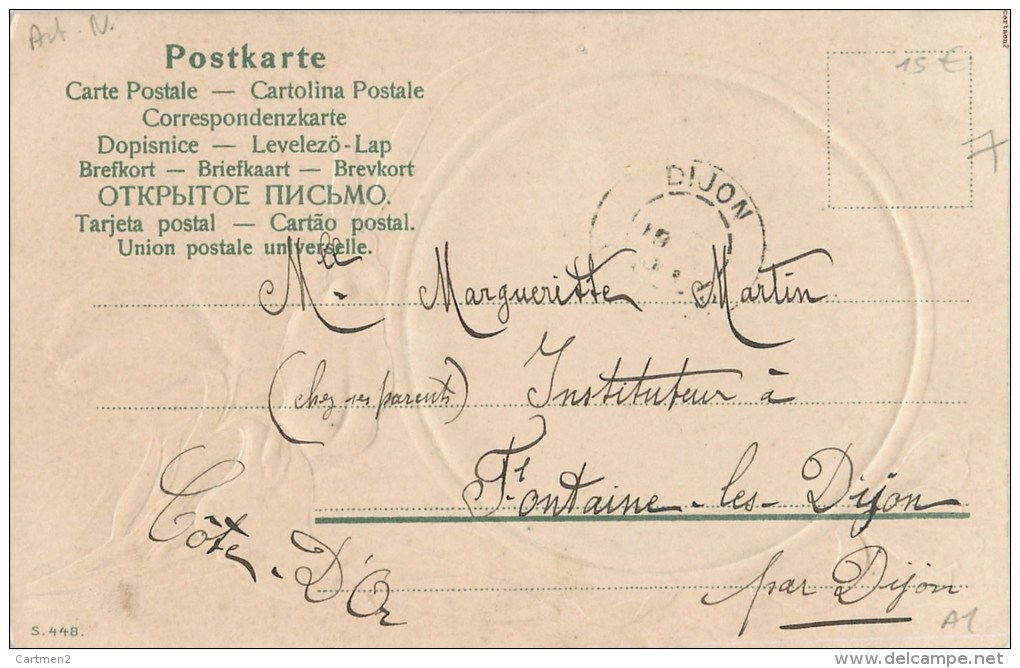 Art. N.
Postkarte
Carte Postale — Cartolina Postale
Correspondenzkarte
Dopisnice — Levelezö-Lap
Brefkort — Briefkaart — Brevkort
ОТКРЫТОЕ ПИСЬМО.
Tarjeta postal — Cartão postal.
Union postale universelle.
15 €
DIJON
Mlle Margueritte Martin
(chez ses parents) Instituteur à
Fontaine-les-Dijon
par Dijon
Côte-D'Or
A1
S. 448.
cartmen2
Cartmen2
www.delcampe.net